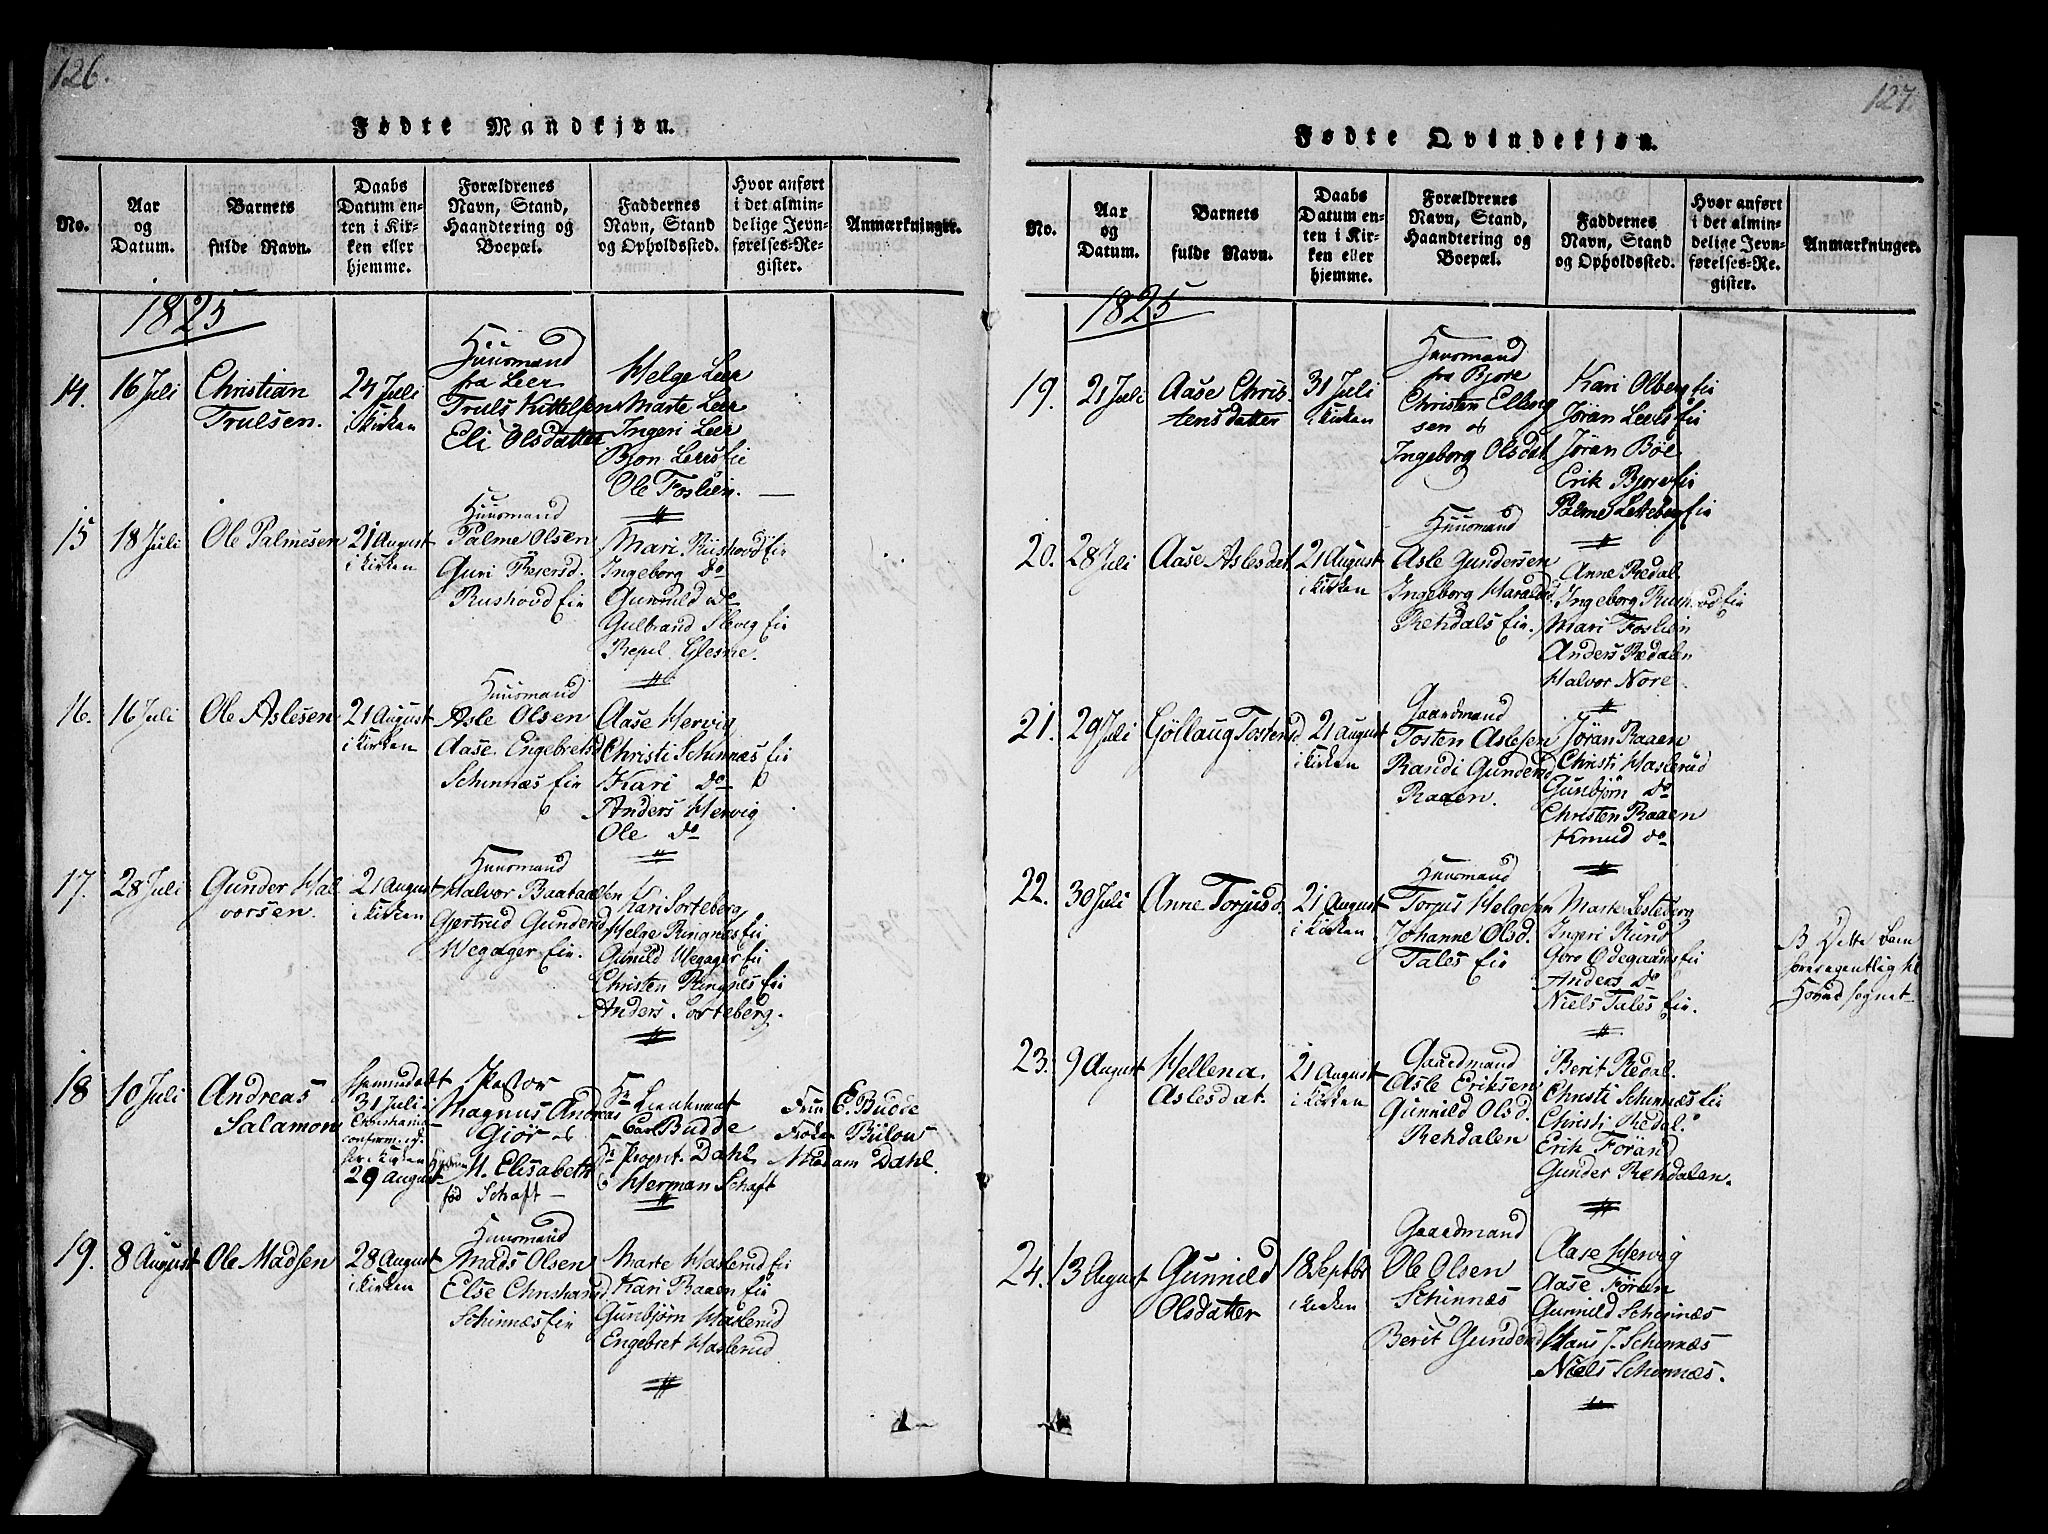 126.
Fødte Mandkjøn.
No.
Aar
og
Datum.
Barnets
fulde Navn.
Daabs
Datum en-
ten i Kir-
ken eller
hjemme.
Forældrenes
Navn, Stand,
Haandtering og
Boepæl.
Faddernes
Navn, Stand
og Opholdssted.
Hvor anført
i det almin-
delige Jevn-
førelses-Re-
gister.
Anmærkninger.
1825
14.
16 Juli
Christian
Trulsen.
24 Juli
i Kirken
Huusmand
fra Leer
Truls Kittelsen
Eli Olsdatter
Helge Leer
Marte Leer
Ingeri Leer
Bjon Leerseie
Ole Foslien.
15
18 Juli
Ole Palmesen
21 August
i Kirken
Huusmand
Palme Olsen
Guri Reiersd.
Rushovd Eie
Mari Rushovd Eie
Ingeborg do
Gunnild do
Gulbrand Slevig Eie
Glesne.
16.
16 Juli
Ole Aslesen
21 August
i Kirken
Huusmand
Asle Olsen
Aase Engebretsd
Schinnæs Eie
Aase Hervig
Christi Schinnæs Eie
Kari do
Anders Hervig
Ole do
17.
28 Juli
Gunder Hal
vorsen.
21 August
i Kirken
Huusmand
Halvor Baataalsen
Gjertrud Gundersd
Wegager Eie.
Kari Sorteberg
Helge Ringnæs Eie
Gunild Wegager Eie
Christen Ringnes Eie
Anders Sorteberg.
18
10 Juli
Andreas
Salamon
hjemmedøbt
31 Juli i
Christiania
confirm. og
fr. i Kirken
29 August
Pastor
Magnus Andreas
Giør og
M. Elisabeth
fød Schaft
Hr Lieutenant
Carl Budde
Hr Propriet. Dahl
Herman Schaft
Frue E. Budde
Frøken Bülow
Madam Dahl.
19.
8 August
Ole Madsen
28 August
i Kirken
Huusmand
Mads Olsen
Else Christiansd
Schinnæs Eie
Marte Haslerud Eie
Kari Raaen Eie
Gunbjørn Haslerud
Engebret Haslerud
127.
Fødte Qvindekjøn.
No.
Aar
og
Datum.
Barnets
fulde Navn.
Daabs
Datum en-
ten i Kir-
ken eller
hjemme.
Forældrenes
Navn, Stand,
Haandtering og
Boepæl.
Faddernes
Navn, Stand
og Opholdssted.
Hvor anført
i det almin-
delige Jevn-
førelses-Re-
gister.
Anmærkninger.
1825
19.
21 Juli
Aase Chris-
tensdatter
31 Juli
i Kirken
Huusmand
fra Bjøre
Christen Elling
sen og
Ingeborg Olsdat.
Kari Olberg Eie
Jøran Leers Eie
Jøran Böe
Erik Bjøre Eie
Palme Lesteberg Eie
20.
28 Juli
Aase Aslesdat.
21 August
i Kirken
Huusmand
Asle Gundersen
Ingeborg Haralds
Rehdals Eie.
Anne Redal
Ingeborg Rushovd Eie
Mari Foslien
Anders Redalen
Halvor Nore.
21.
29 Juli
Göllaug Tostensd
21 August
i Kirken
Gaardmand
Tosten Aslesen
Randi Gundersd
Raaen.
Jøran Raaen
Christi Haslerud
Gunbjørn do
Christen Raaen
Knud do
22.
30 Juli
Anne Torjusd.
21 August
i Kirken
Huusmand
Torjus Helgesen
Johanne Olsd.
Tales Eie
Marte Lesteberg
Ingeri Rund
Goro Ødegaards Eie
Anders do
Niels Tales Eie.
Dette Barn
hører egentlig til
Sognet
23.
9 August
Hellena
Aslesdat.
21 August
i Kirken
Gaardmand
Asle Eriksen
Gunnild Olsd.
Rehdalen
Berit Redal
Christi Schinnæs Eie
Christi Redal.
Erik Førand
Gunder Rehdalen.
24.
13 August
Gunnild
Olsdatter
18 Septbr
i Kirken
Gaardmand
Ole Olsen
Schinnæs
Berit Gundersd
Aase Hervig
Aase Føren
Gunnild Schinnæs
Hans J. Schinnæs
Niels Schinnæs.